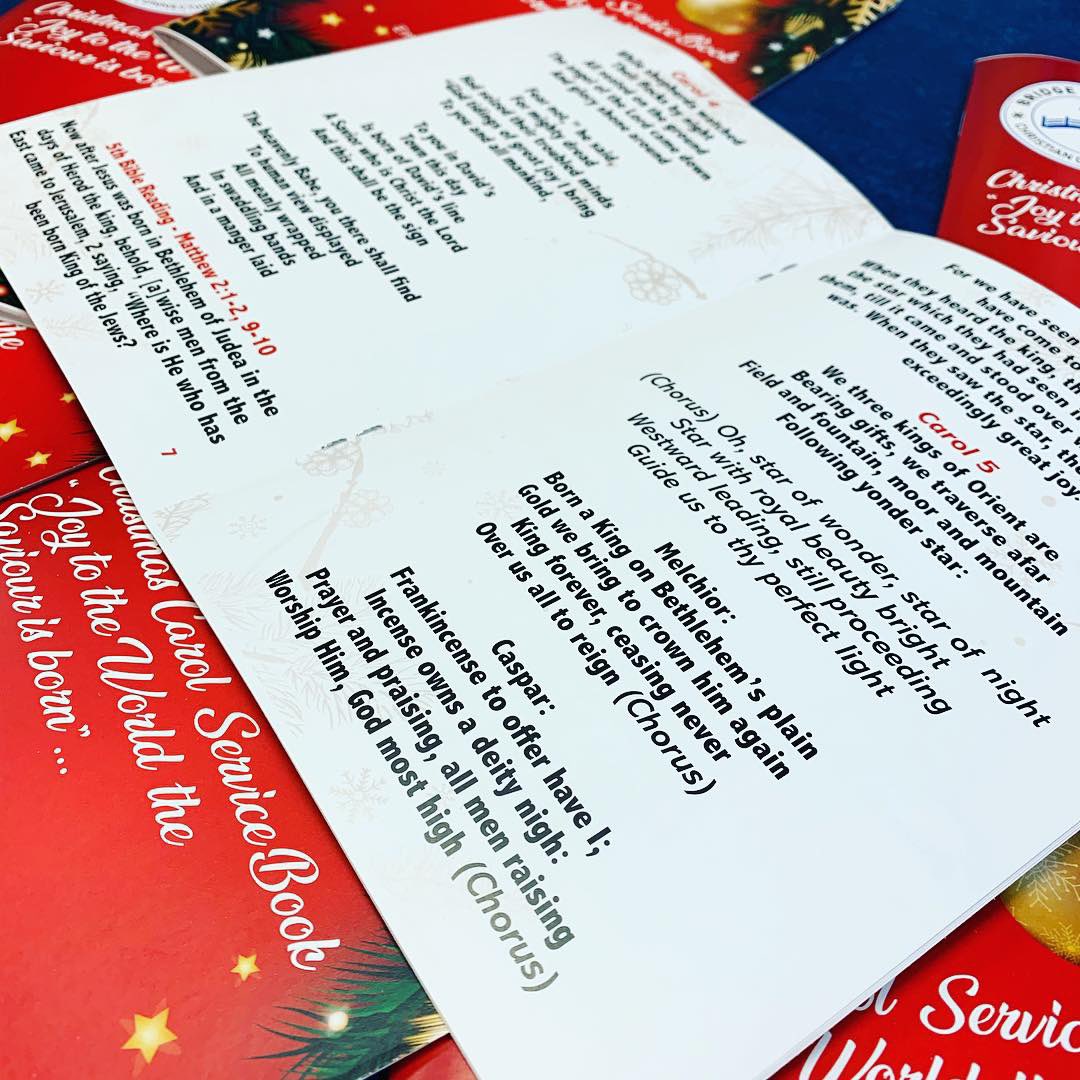 Carol 4
While shepherds watched
Their flocks by night
All seated on the ground
The angel of the Lord came down
And glory shone around
Fear not," he said,
For mighty dread
Had seized their troubled minds
Glad tidings of great joy I bring
To you and all mankind,
To you in David's
Town this day
Is born of David's line
A Savior who is Christ the Lord
And this shall be the sign
The heavenly Babe, you there shall find
To human view displayed
All meanly wrapped
In swaddling bands
And in a manger laid
5th Bible Reading - Matthew 2:1-2, 9-10
Now after Jesus was born in Bethlehem of Judea in the
days of Herod the king, behold, [a]wise men from the
East came to Jerusalem, 2 saying, "Where is He who has
been born King of the Jews?
7
For we have seen
have come to
When they heard the king, th
the star which they had seen i
them, till it came and stood over w
was. When they saw the star, the
exceedingly great joy.
Carol 5
We three kings of Orient are
Bearing gifts, we traverse afar
Field and fountain, moor and mountain
Following yonder star:
(Chorus) Oh, star of wonder, star of night
Star with royal beauty bright
Westward leading, still proceeding
Guide us to thy perfect light
Melchior:
Born a King on Bethlehem's plain
Gold we bring to crown him again
King forever, ceasing never
Over us all to reign (Chorus)
Caspar:
Frankincense to offer have I;
Incense owns a deity nigh:
Prayer and praising, all men raising
Worship Him, God most high (Chorus)
Christmas
"Joy to the W
Saviour is bor
Service Book
BRIDGE
CHRISTIAN
Christma
"Joy to
Saviou
the
Christmas Carol Service Book
"Joy to the World the
Saviour is born"...
ol Servic
World th